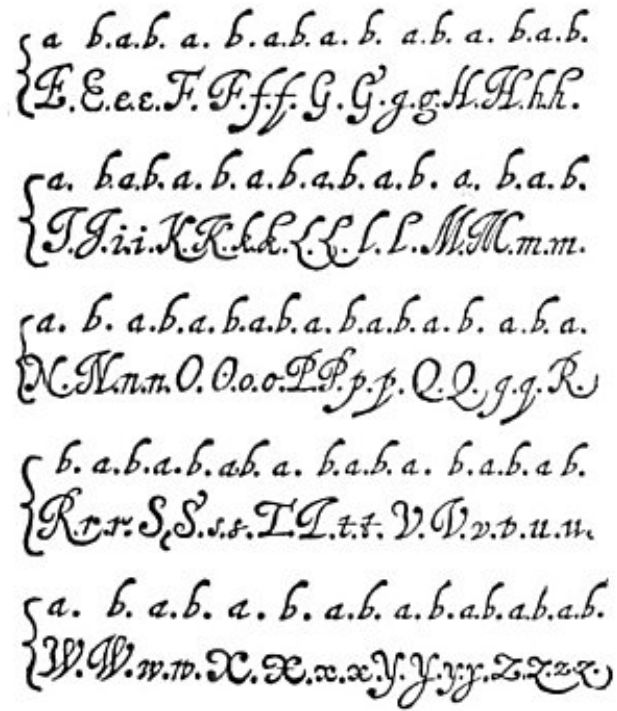 a b.a.b. a. b.a.b a. b. a.b. a. b.a.b.
E.E.e.e.F.F.f.f.G.G.g.g.H.H.h.h.
a. b.a.b.a.b.a.b.a.b.a.b. a. b.a.b.
I.J.i.i.K.K.k.k.L.L.l.l.M.M.m.m.
a. b. a.b.a.b.a.b.a.b.a.b.a.b. a.b.a.
N.N.n.n.O.O.o.o.P.P.p.p.Q.Q.q.q.R.
b. a.b.a.b.ab. a. b.a.b.a. b.a.b.a b.
R.r.r.S.S.s.s.T.T.t.t.V.V.v.v.u.u.
a. b. a.b. a. b. a.b. a.b.a.b.a.b.a.b.
W.W.w.w.X.X.x.x.Y.Y.y.y.Z.Z.z.z.